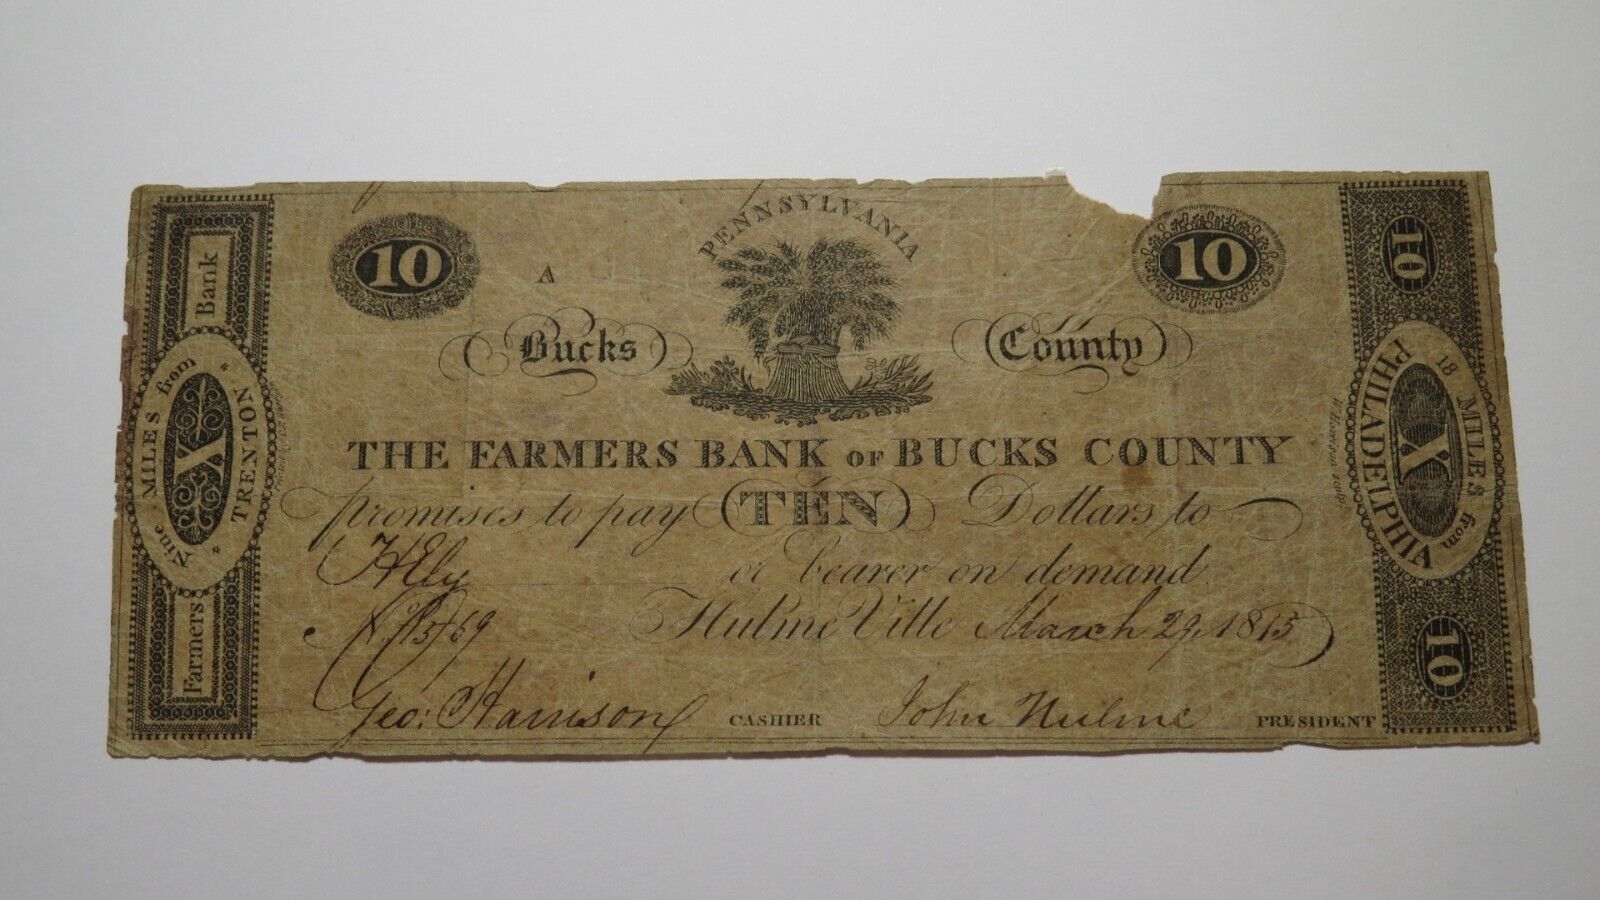 Farmers Bank
Nine MILES from TRENTON
X
10
A
PENNSYLVANIA
10
Bucks County
THE FARMERS BANK OF BUCKS COUNTY
promises to pay TEN Dollars to
H Ely or bearer on demand
HulmeVille March 29, 1815
Geo: Harrison CASHIER John Hulme PRESIDENT
10
18 MILES from PHILADELPHIA
X
10